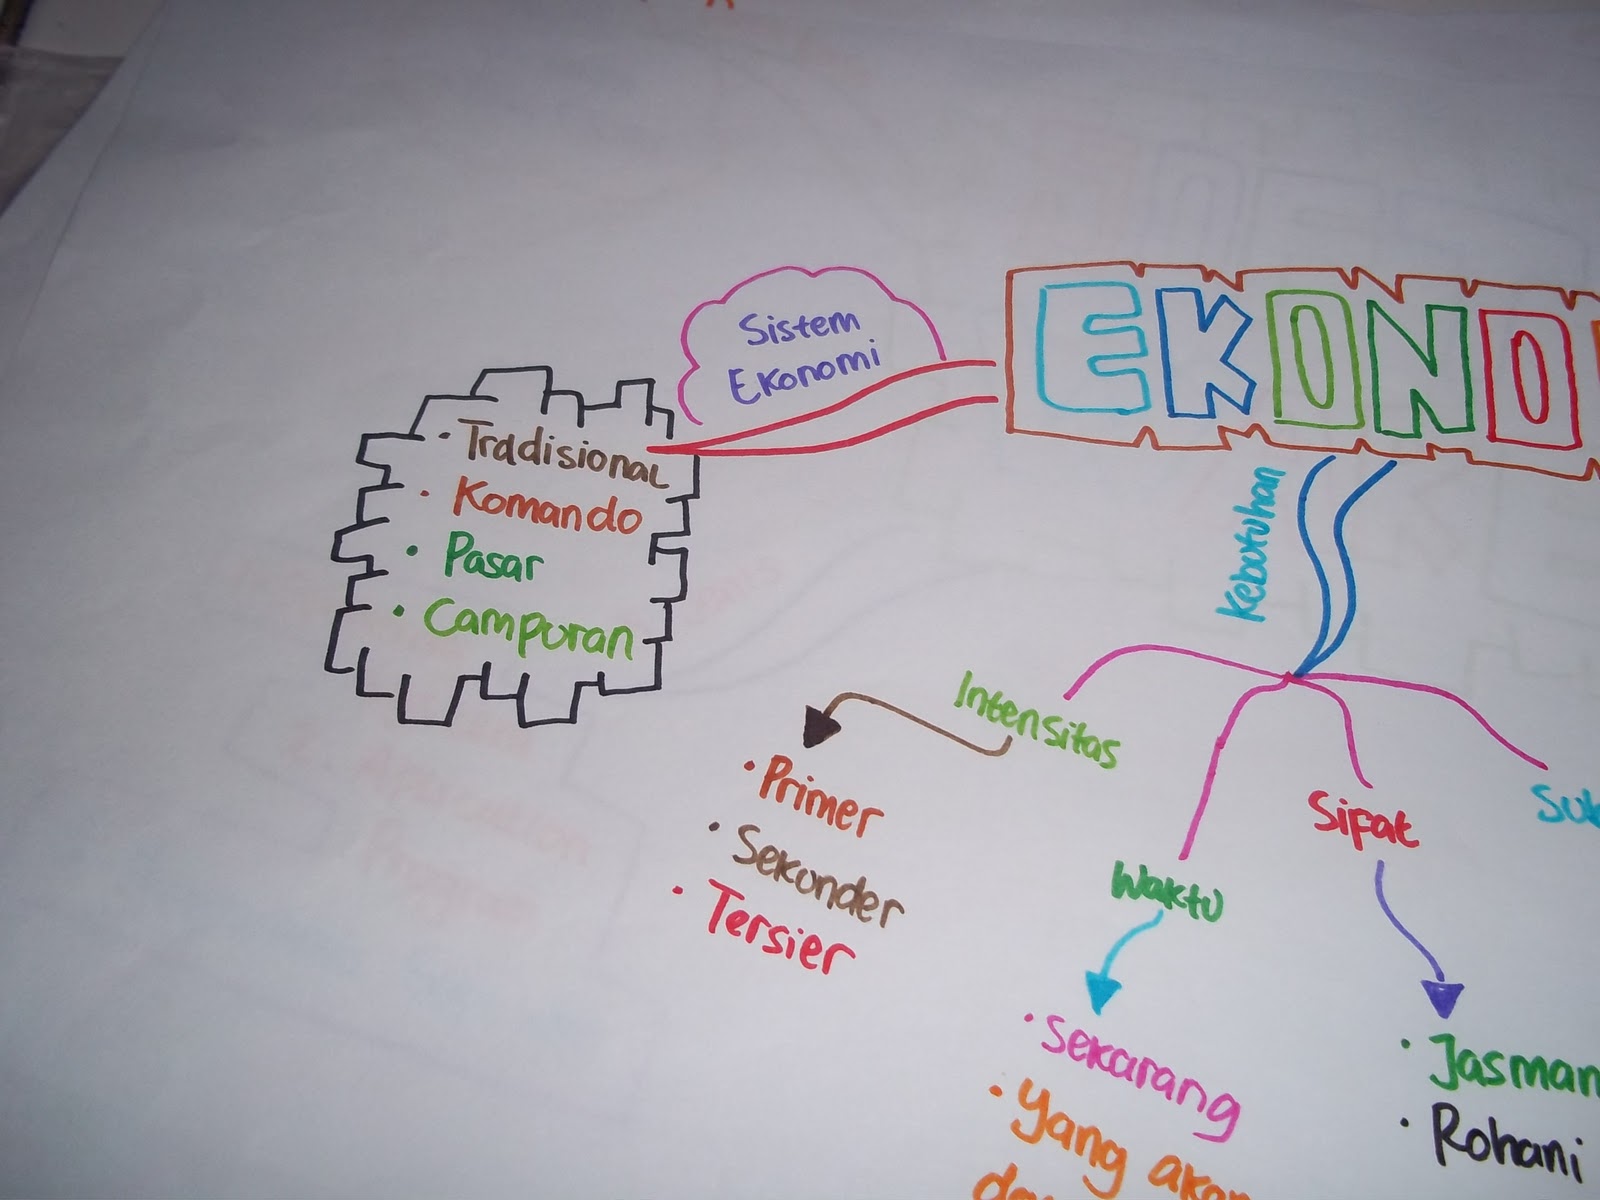 Sistem
Ekonomi
EKONO
· Tradisional
· Komando
· Pasar
· Campuran
Kebutuhan
Intensitas
· Primer
· Sekunder
· Tersier
Waktu
· Sekarang
· Yang
Sifat
· Jasman
· Rohani